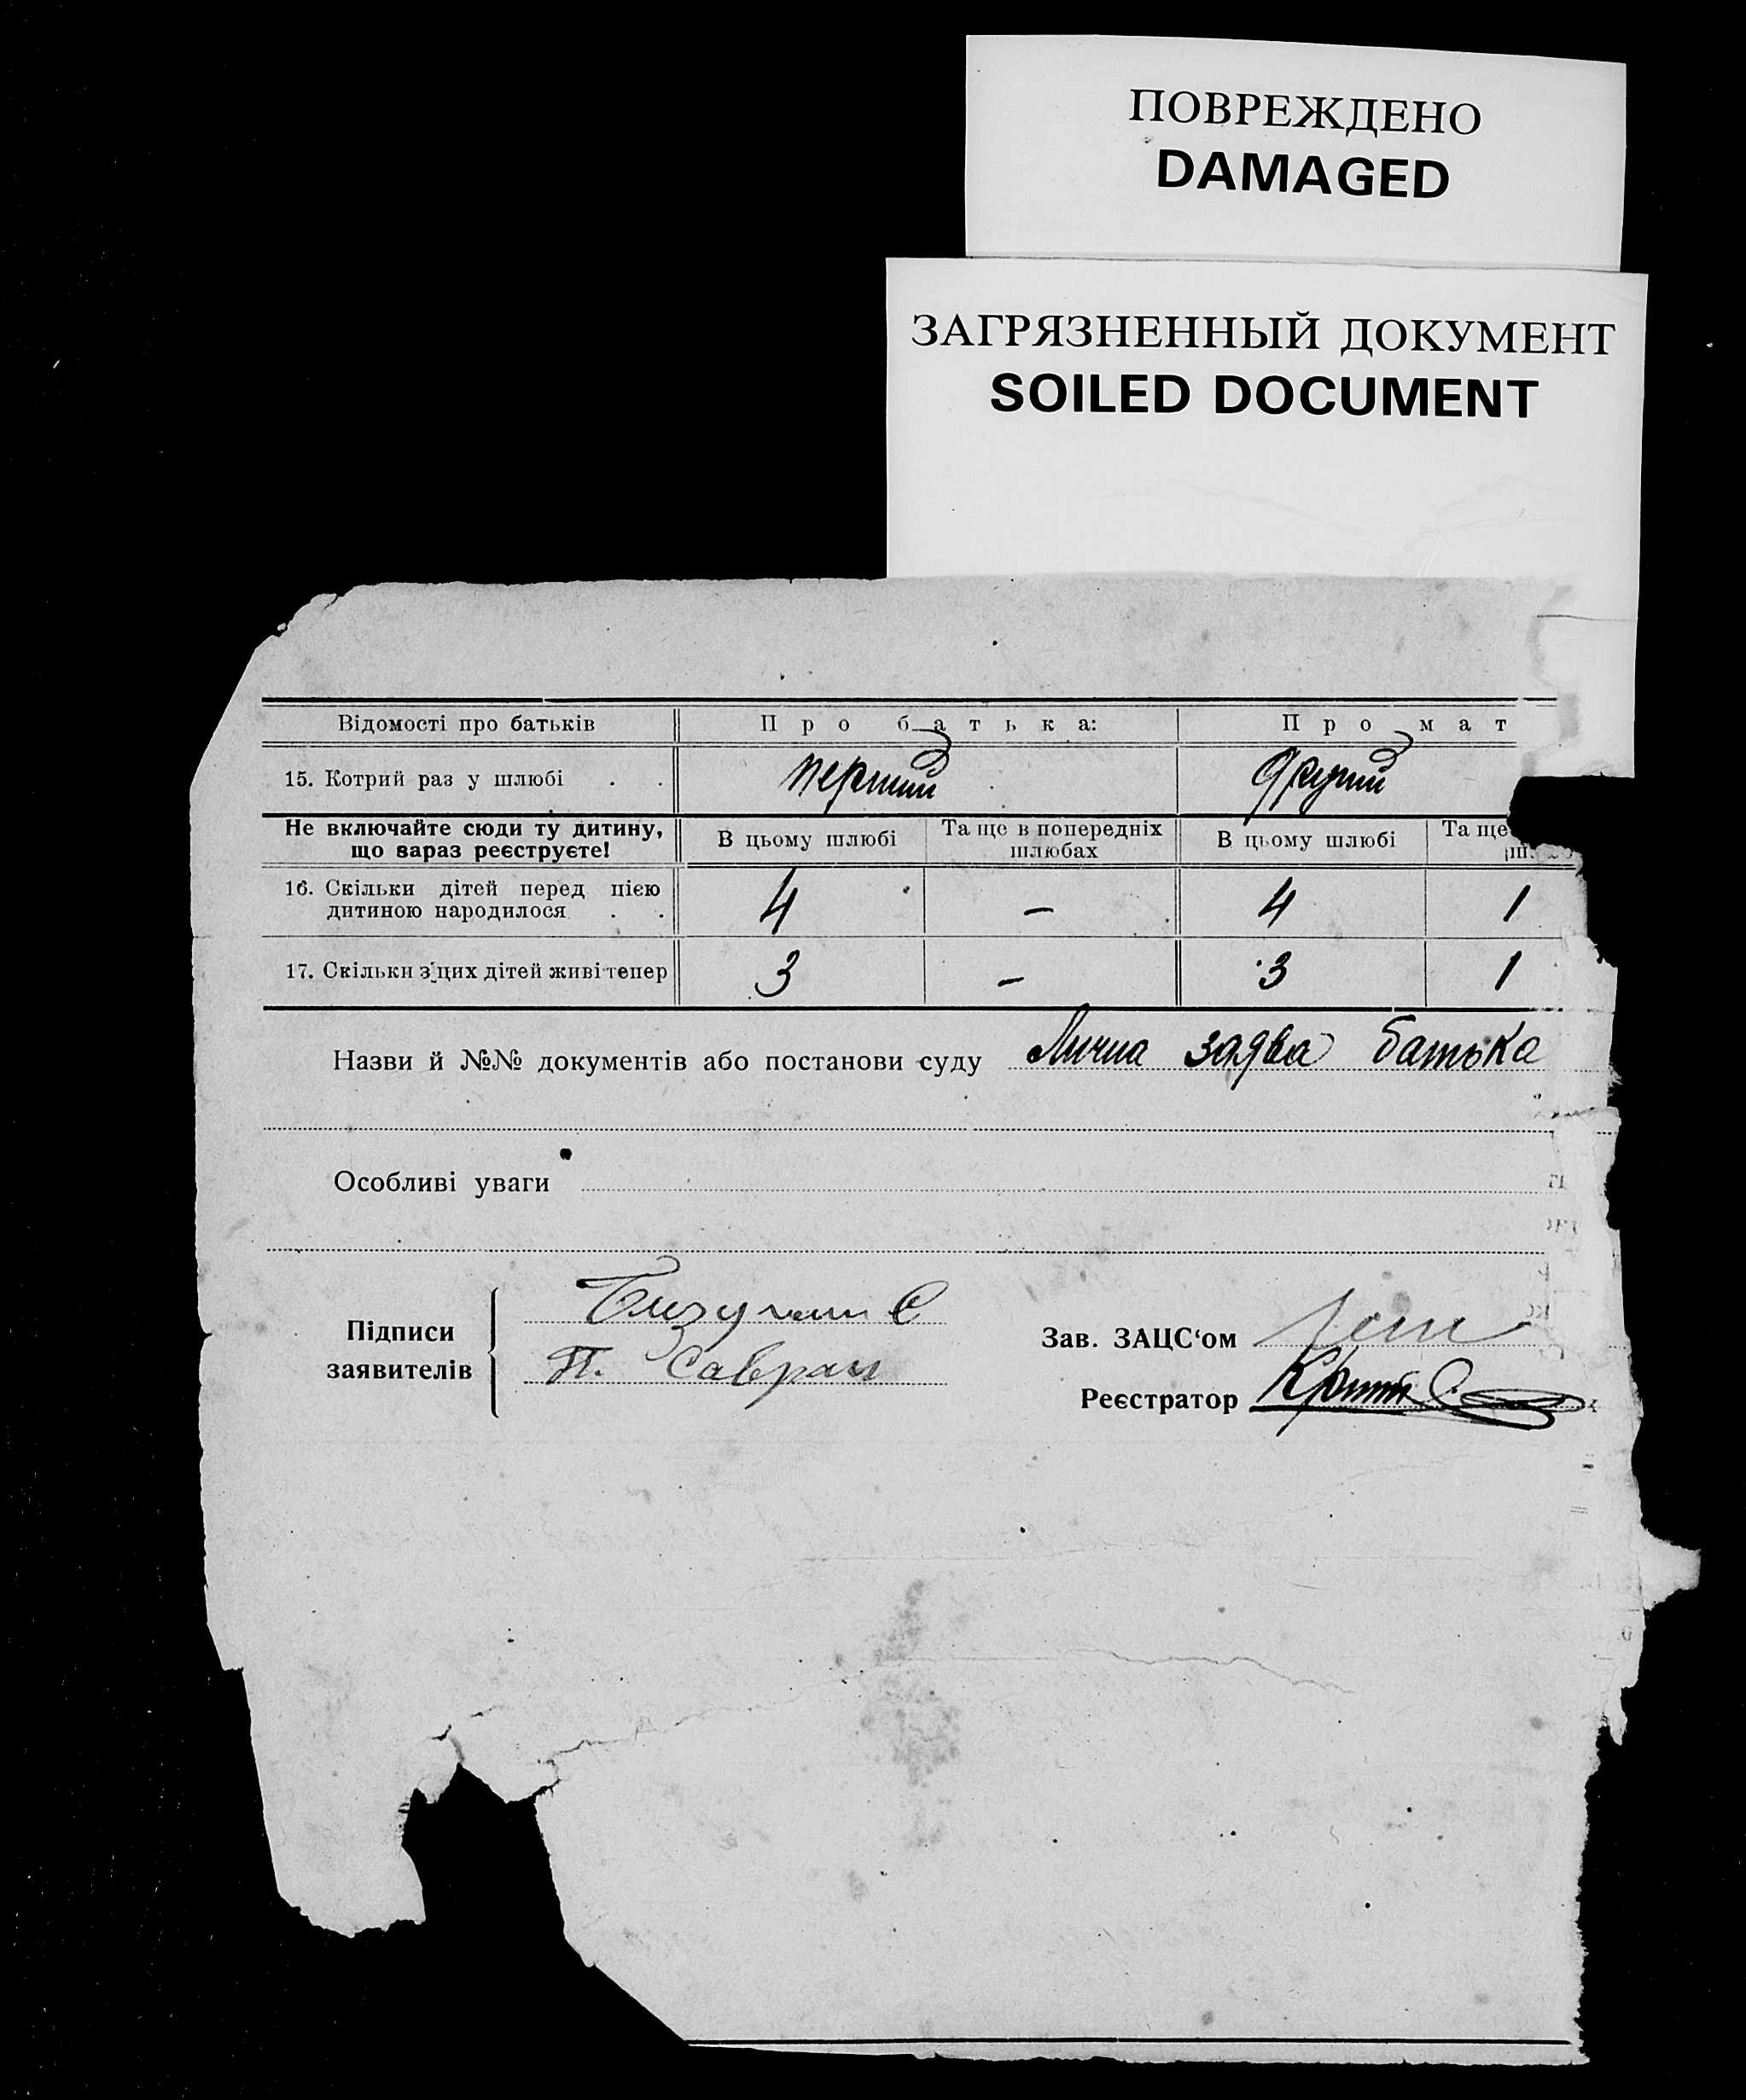 ПОВРЕЖДЕНО
DAMAGED
ЗАГРЯЗНЕННЫЙ ДОКУМЕНТ
SOILED DOCUMENT
Відомості про батьків Про батька: Про мат
15. Котрий раз у шлюбі . . перший другий
Не включайте сюди ту дитину, що зараз реєструєте! В цьому шлюбі Та ще в попередніх шлюбах В цьому шлюбі Та ще
16. Скільки дітей перед цією
дитиною народилося . . 4 — 4 1
17. Скільки з цих дітей живі тепер 3 — 3 1
Назви й №№ документів або постанови суду Лична заява батька
Особливі уваги
Підписи
заявителів
П. Савран
Зав. ЗАЦС'ом
Реєстратор